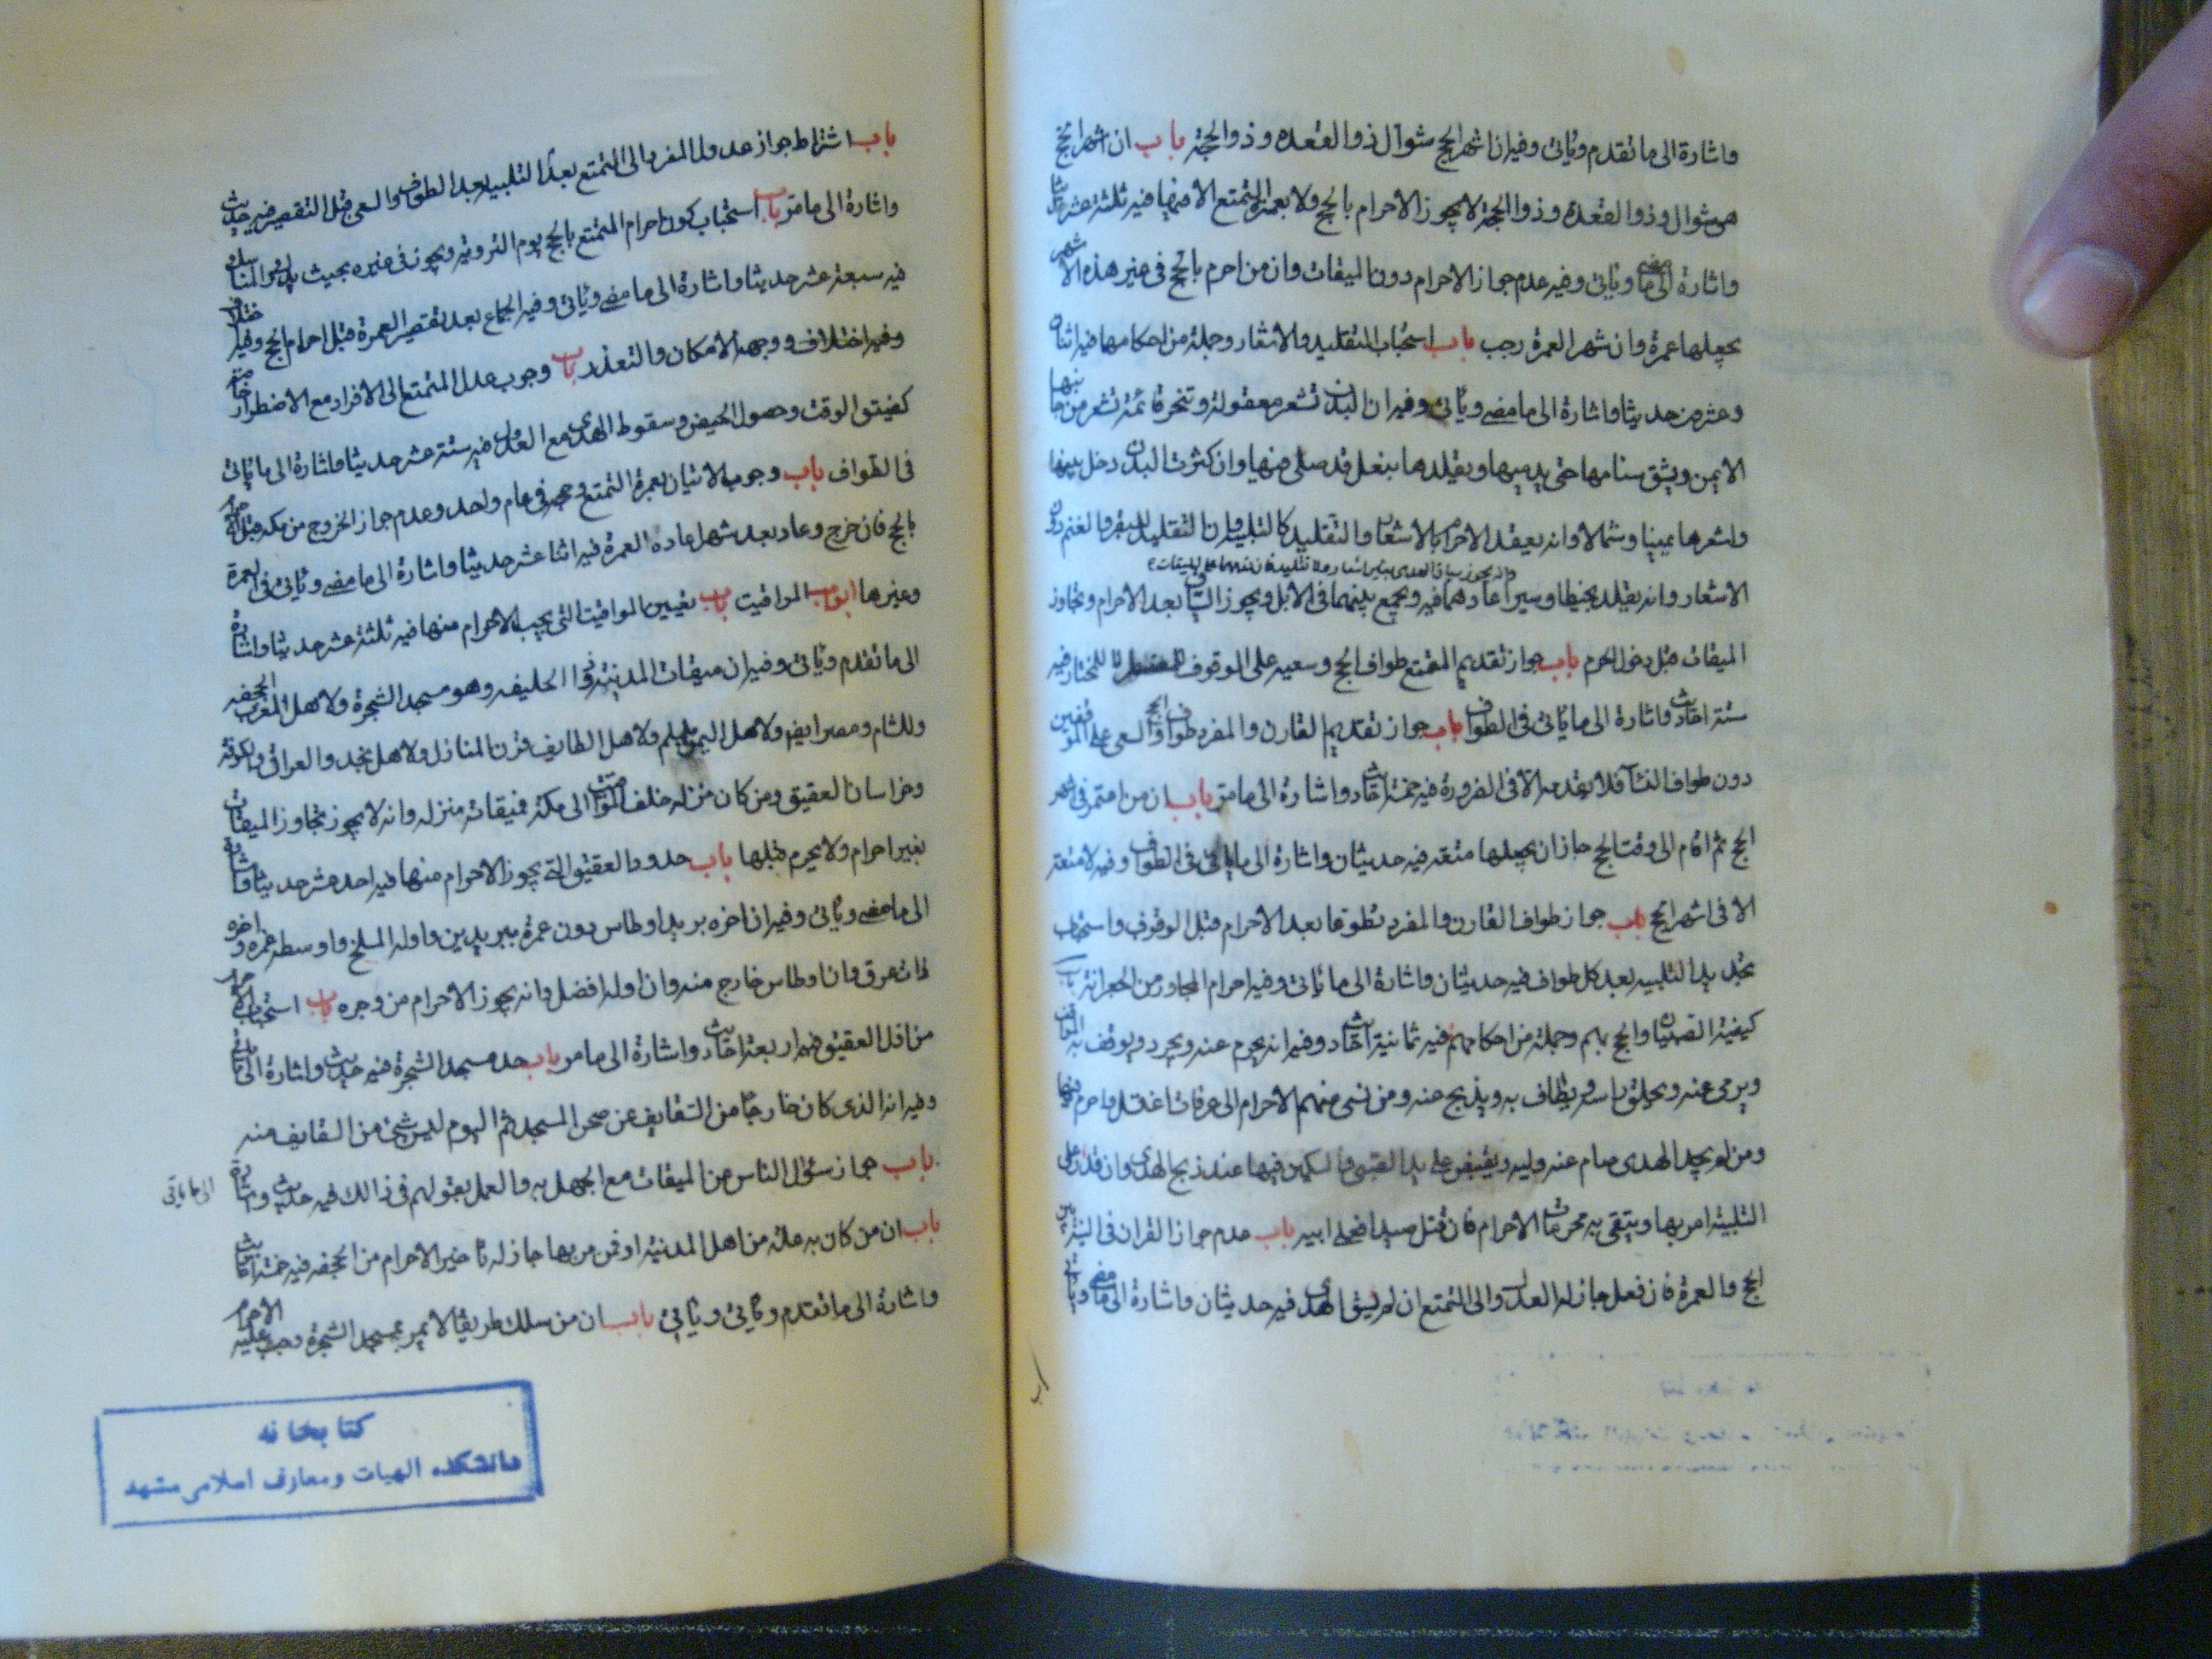 واشارة الى ما تقدم وياتى وفيه ان اشهر الحج شوال ذو القعده وذو الحجة باب ان اشهر الحج
هى شوال وذو القعدة وذو الحجة لا يجوز الاحرام بالحج ولا بعمرة التمتع الا فيها فيه ثلثة عشر حديثا
واشارة الى ما مضى وياتى وفيه عدم جواز الاحرام دون الميقات وان من احرم بالحج فى غير هذه الاشهر
يجعلها عمرة وان شهر العمرة رجب باب استحباب التقليد والاشعار وجملة من احكامها فيه اثنان
وعشرين حديثا واشارة الى ما مضى وياتى وفيه ان البدن تشعر معقولة وتنحر قائمة تشعر من جانبها
الايمن ويشق سنامها حتى يدميها ويقلدها بنعل قد صلى فيها وان كثرت البدن دخل بينها
واشعرها يمينا وشمالا وانه يعقد الاحرام بالاشعار والتقليد كالتلبية وان التقليد للبقر والغنم دون
الاشعار وانه يقلد بخيط او سير اعادهما فيه ويجمع بينهما فى الابل ويجوز بعد الاحرام وتجاوز
الميقات قبل دخول الحرم باب جواز تقديم المتمتع طواف الحج وسعيه على الوقوف للمختار فيه
ستة احاديث واشارة الى ما ياتى فى الطواف باب جواز تقديم القارن والمفرد طواف الحج والسعى على الموقفين
دون طواف النساء فلا يقدم الا فى الضرورة فيه خمسة احاديث واشارة الى ما مر باب ان من اعتمر فى اشهر
الحج ثم اقام الى وقت الحج جاز ان يجعلها متعة فيه حديثان واشارة الى ما ياتى فى الطواف وفيه لا متعة
الا فى اشهر الحج باب جواز طواف القارن والمفرد تطوعا بعد الاحرام قبل الوقوف واستحباب
تجديد التلبية بعد كل طواف فيه حديثان واشارة الى ما ياتى وفيه احرام المجاور من الجعرانة باب
كيفية الصبيان والحج بهم وجملة من احكامهم فيه ثمانية احاديث وفيه انه يحرم عنه ويجرد ويوقف به المواقف
ويرمى عنه ويحلق راسه ويطاف به ويذبح عنه ومن نسى منهم الاحرام الى عرفات اغتسل واحرم فيها
ومن لم يجد الهدى صام عنه وليه ويقبض على يد الصبى والسكين فيها عند ذبح الهدى وان قدر على
التلبية امر بها ويتقى به محرمات الاحرام فان قتل صيدا فعلى ابيه باب عدم جواز القران فى النية بين
الحج والعمرة فان فعل جاز له العدول الى التمتع ان لم يسق الهدى فيه حديثان واشارة الى ما مضى وياتى
باب اشتراط جواز عدول المفرد الى التمتع بعد التلبية بعد الطواف والسعى قبل التقصير فيه حديث
واشارة الى ما مر باب استحباب كون احرام المتمتع بالحج يوم التروية ويجوز فى غيره بحيث يدرك المناسك
فيه سبعة عشر حديثا واشارة الى ما مضى وياتى وفيه الجماع بعد تقصير العمرة قبل احرام الحج وفيه
وفيه اختلاف ووجهه الامكان والتعذر باب وجوب عدل المتمتع الى الافراد مع الاضطرار خاصة
كضيق الوقت وحصول الحيض وسقوط الهدى مع العدول فيه ستة عشر حديثا واشارة الى ما ياتى
فى الطواف باب وجوب الاتيان بعمرة التمتع وحجه فى عام واحد وعدم جواز الخروج من مكة قبل احرام
بالحج فان خرج وعاد بعد شهر اعاده العمرة فيه اثنا عشر حديثا واشارة الى ما مضى وياتى فى العمرة
وغيرها ابواب المواقيت باب تعيين المواقيت التى يجب الاحرام منها فيه ثلثة عشر حديثا واشارة
الى ما تقدم وياتى وفيه ان ميقات المدينة ذوا الحليفه وهو مسجد الشجرة ولاهل المغرب الجحفه
وللشام ومصر ايضا ولاهل اليمن يلملم ولاهل الطايف قرن المنازل ولاهل نجد والعراق والكوفة
وخراسان العقيق ومن كان منزله خلف المواقيت الى مكة فميقاته منزله وانه لا يجوز تجاوز الميقات
بغير احرام ولا يحرم قبلها باب حدود العقيق التى يجوز الاحرام منها فيه احد عشر حديثا واشارة
الى ما مضى وياتى وفيه ان اخره بريد اوطاس دون غمرة ببريدين واوله المسلخ واوسطه غمره واخره
ذات عرق وان اوطاس خارج منه وان اوله افضل وانه يجوز الاحرام من وجره باب استحباب الاحرام
من اول العقيق فيه اربعة احاديث واشارة الى ما مر باب حد مسجد الشجرة فيه حديث واشارة الى ما ياتى
وفيه انه الذى كان خارجا من السقايف عن صحن المسجد ثم اليوم ليس شئ من السقايف منه
باب جواز سئوال الناس عن الميقات مع الجهل به والعمل بقولهم فى ذالك فيه حديث واشارة
الى ما ياتى
باب ان من كان به علة من اهل المدينة او فمن مر بها جاز له تاخير الاحرام من الجحفه فيه خمسة احاديث
واشارة الى ما تقدم وياتى وياتى باب ان من سلك طريقا لا يمر بمسجد الشجرة وجب عليه الاحرام
كتابخانه
دانشكده الهيات ومعارف اسلامى مشهد